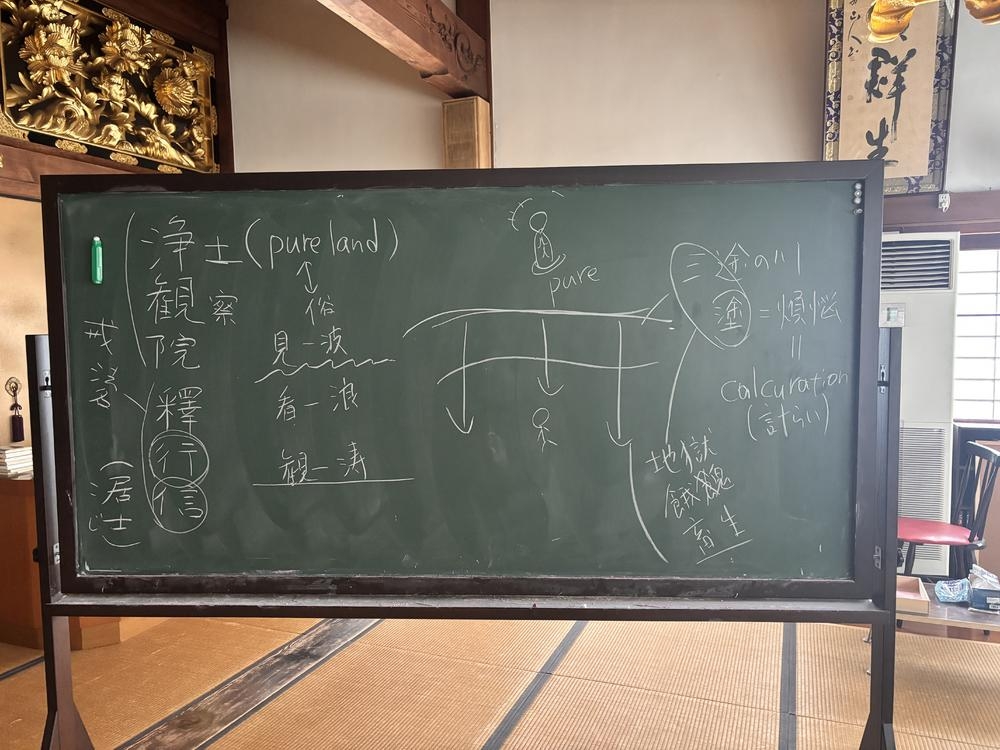 浄土 (pure land)
↕
俗
観察
院
釋
行
信
戒
(居士)
見－波
看－浪
観－涛
pure
三途
塗＝煩悩
〃
calcuration
(計らい)
地獄
餓鬼
畜生
群
生